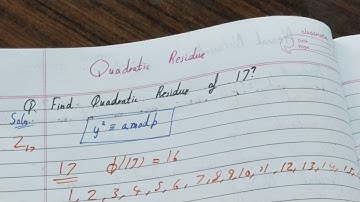 classmate
Date
Page
Quadratic Residue
Q. Find Quadratic Residue of 17?
Soln.
y² ≡ a mod p
Z₁₇
17 ϕ(17) = 16
1, 2, 3, 4, 5, 6, 7, 8, 9, 10, 11, 12, 13, 14, 15,